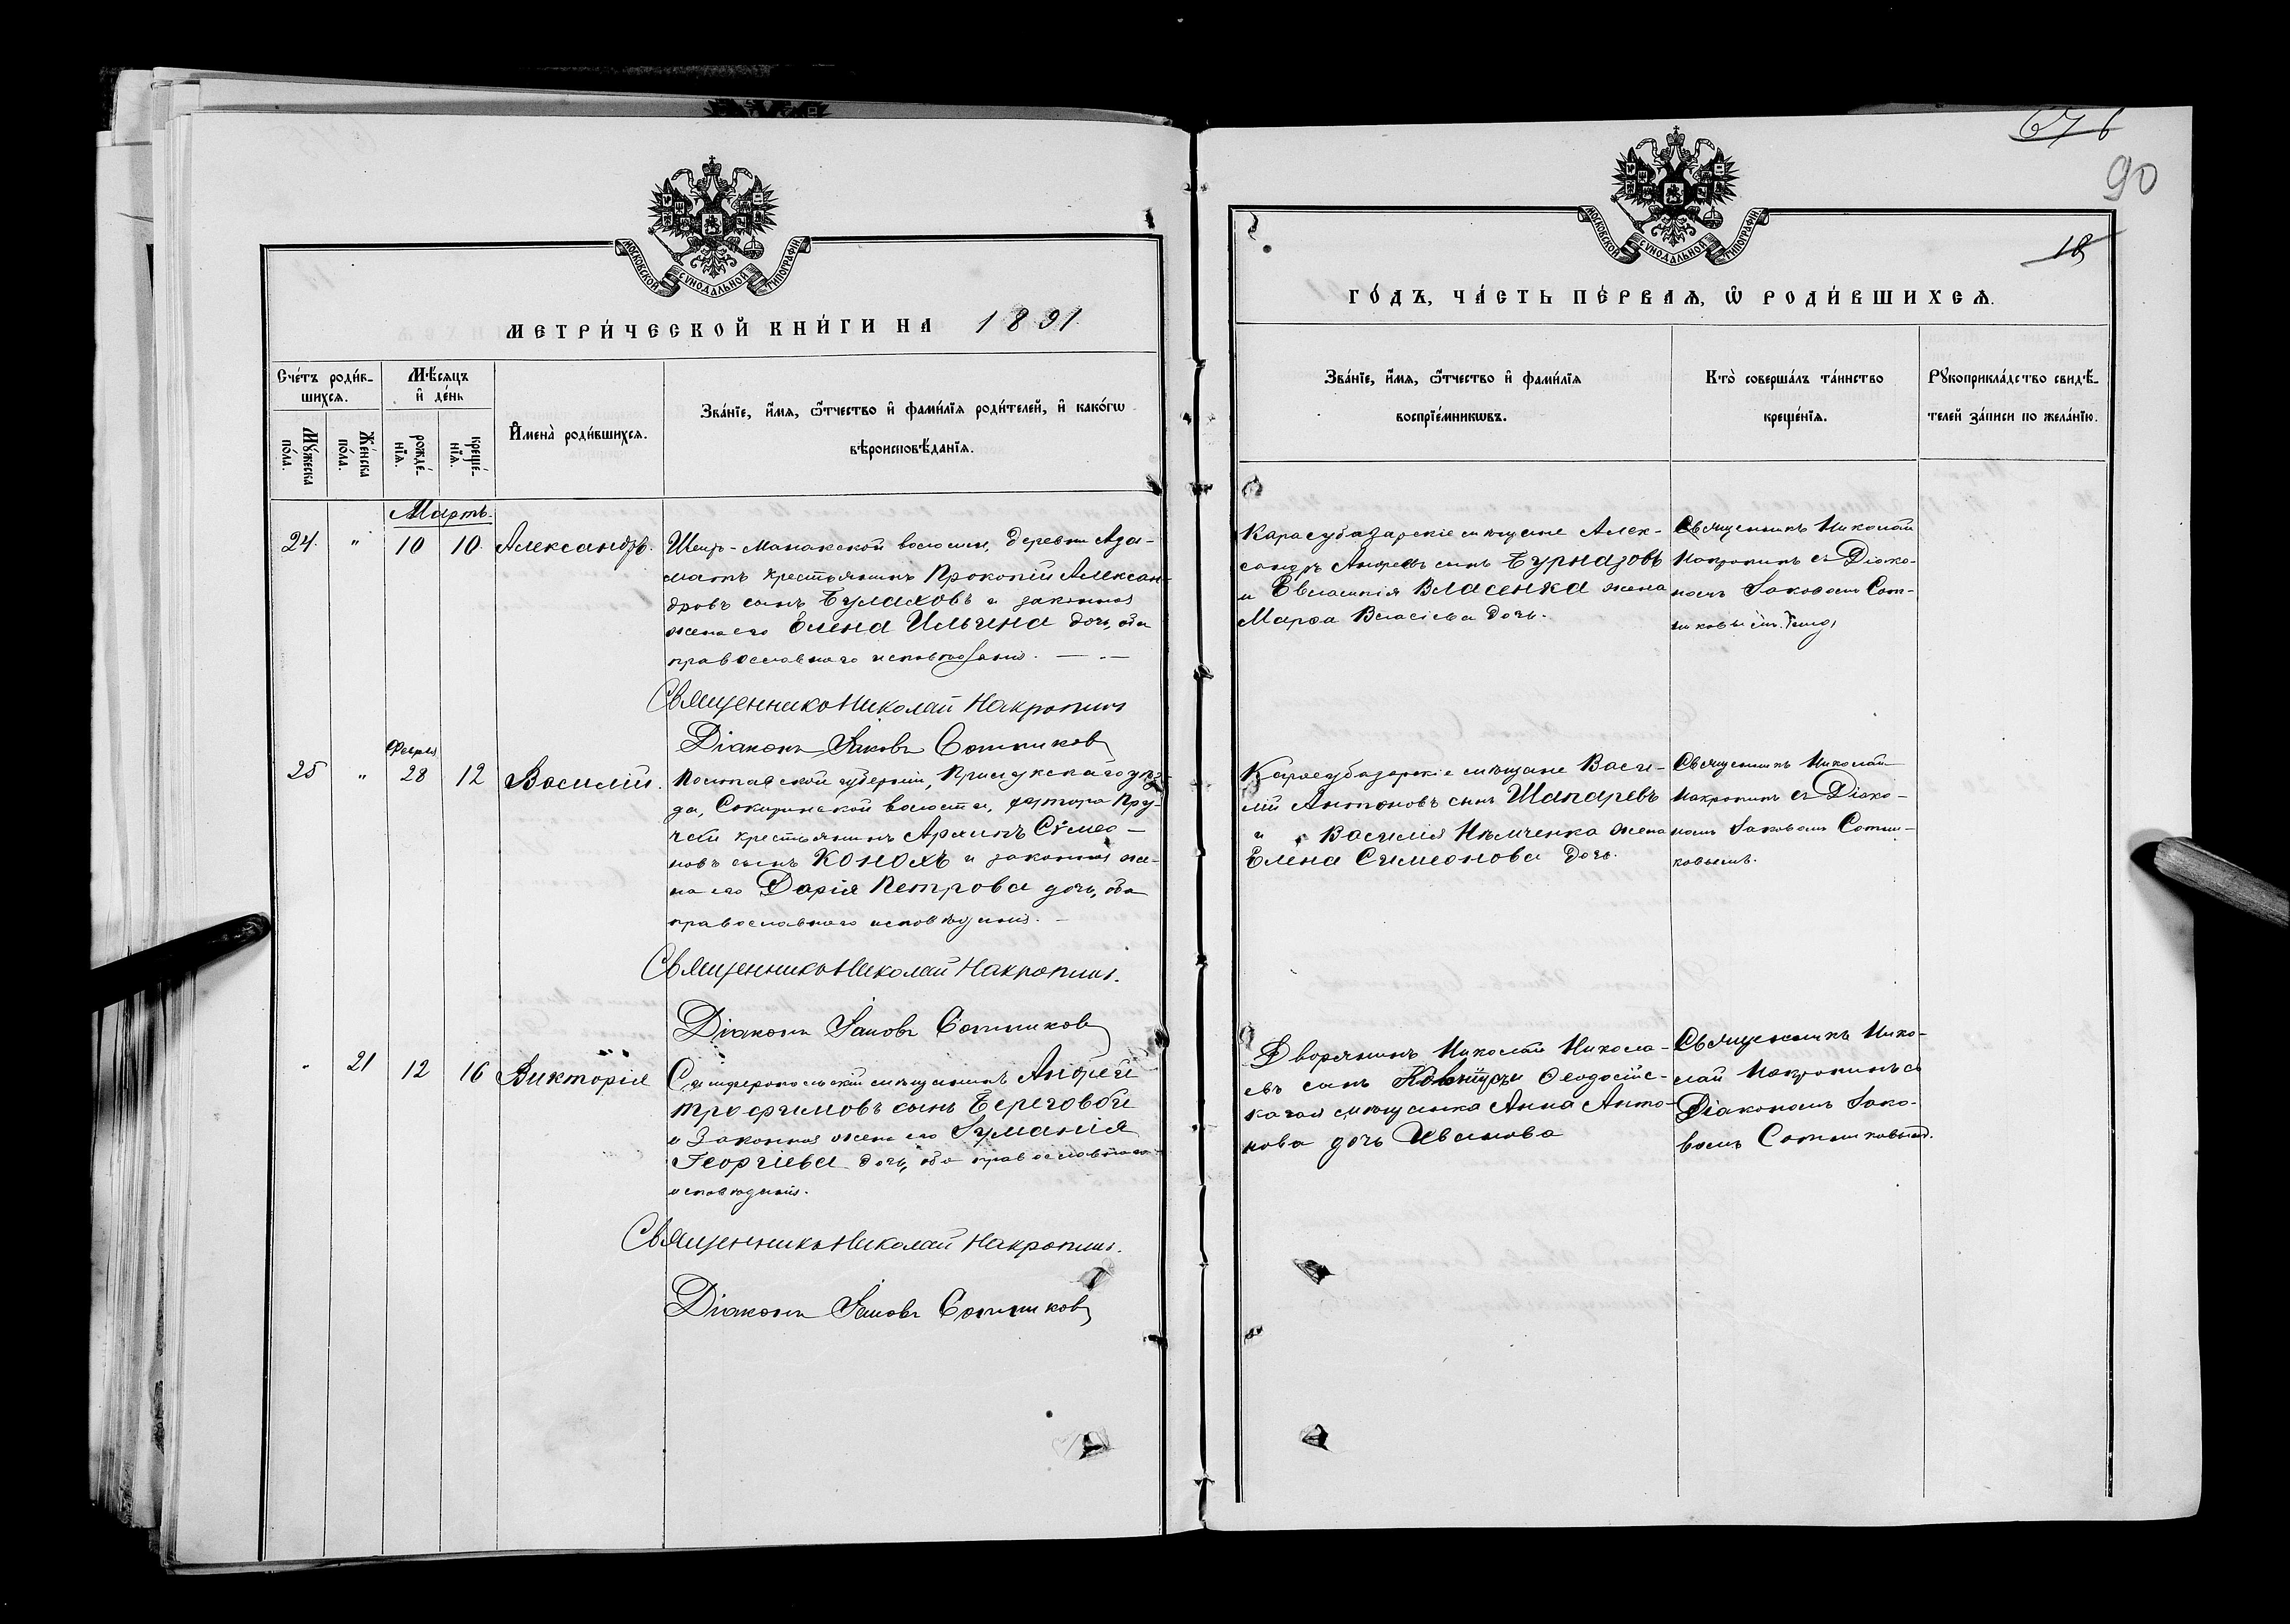 МОСКОВСКОЙ СѴНОДАЛЬНОЙ ТИПОГРАФІИ
МЕТРИ́ЧЕСКОЙ КНИ́ГИ НА 1891
Сче́тъ роди́в-
шихся.
Мѣ́сяцъ
и҆ де́нь
Мꙋ́жеска
по́ла.
Же́нска
по́ла.
рожде́-
нїя.
креще́-
нїя.
И҆мена̀ роди́вшихся.
Зва́нїе, и҆́мя, ѻ҆́тчество и҆ фами́лїя роди́телей, и҆ како́гѡ
вѣроисповѣ́данїя.
Мартъ.
24. " 10 10. Александръ.
Шеих-Манакской волости, деревни Аза-
матъ крестьянинъ Прокопій Алексан-
дровъ сынъ Булаховъ и законная
жена его Елена Ильина дочь, оба
православного исповѣданія.
Священникъ Николай Макропинъ
Діаконъ Іаковъ Сотниковъ
Февраля
25 " 28 12 Василій.
Полтавской губерніи, Прилукскаго уѣз-
да, Сокиринской волости, хутора Пру-
крестьянинъ Архипъ Сѵмео-
новъ сынъ Конохъ и законная же-
на его Дарія Петрова дочь, оба
православнаго исповѣданія.
Священникъ Николай Макропинъ.
Діаконъ Іаковъ Сотниковъ
" 21 12 16 Викторія
Симферопольскій мѣщанинъ Андрей
Трофимовъ сынъ Береговой
и законная жена его Іуліанія
Георгіева дочь, оба православнаго
исповѣданія.
Священникъ Николай Макропинъ.
Діаконъ Іаковъ Сотниковъ
676
90
18
МОСКОВСКОЙ СѴНОДАЛЬНОЙ ТИПОГРАФІИ
ГО́ДЪ, ЧА́СТЬ ПЕ́РВАѦ, Ѡ҆ РОДИ́ВШИХСѦ.
Зва́нїе, и҆́мя, ѻ҆́тчество и҆ фами́лїя
воспрїе́мникѡвъ.
Кто̀ соверша́лъ та́инство
креще́нїя.
Рꙋкоприкла́дство свидѣ́-
телей за́писи по жела́нїю.
Карасубазарскіе мѣщане Алек-
сандръ Андреевъ сынъ Бурназовъ
и Евстафія Власенка жена
Марѳа Власіева дочь.
Священникъ Николай
Макропинъ съ Діако-
номъ Іаковомъ Сот-
никовымъ.
Карасубазарскіе мѣщане Васи-
лій Антоновъ сынъ Шапаревъ
и Василія Нѣмченка жена
Елена Симеонова дочь.
Священникъ Николай
Макропинъ съ Діако-
номъ Іаковомъ Сотни-
ковымъ.
Дворянинъ Николай Никола-
евъ сынъ Ѳеодосійс-
кая мѣщанка Анна Анто-
нова дочь Иванова
Священникъ Нико-
лай Макропинъ съ
Діакономъ Іако-
вомъ Сотниковымъ.